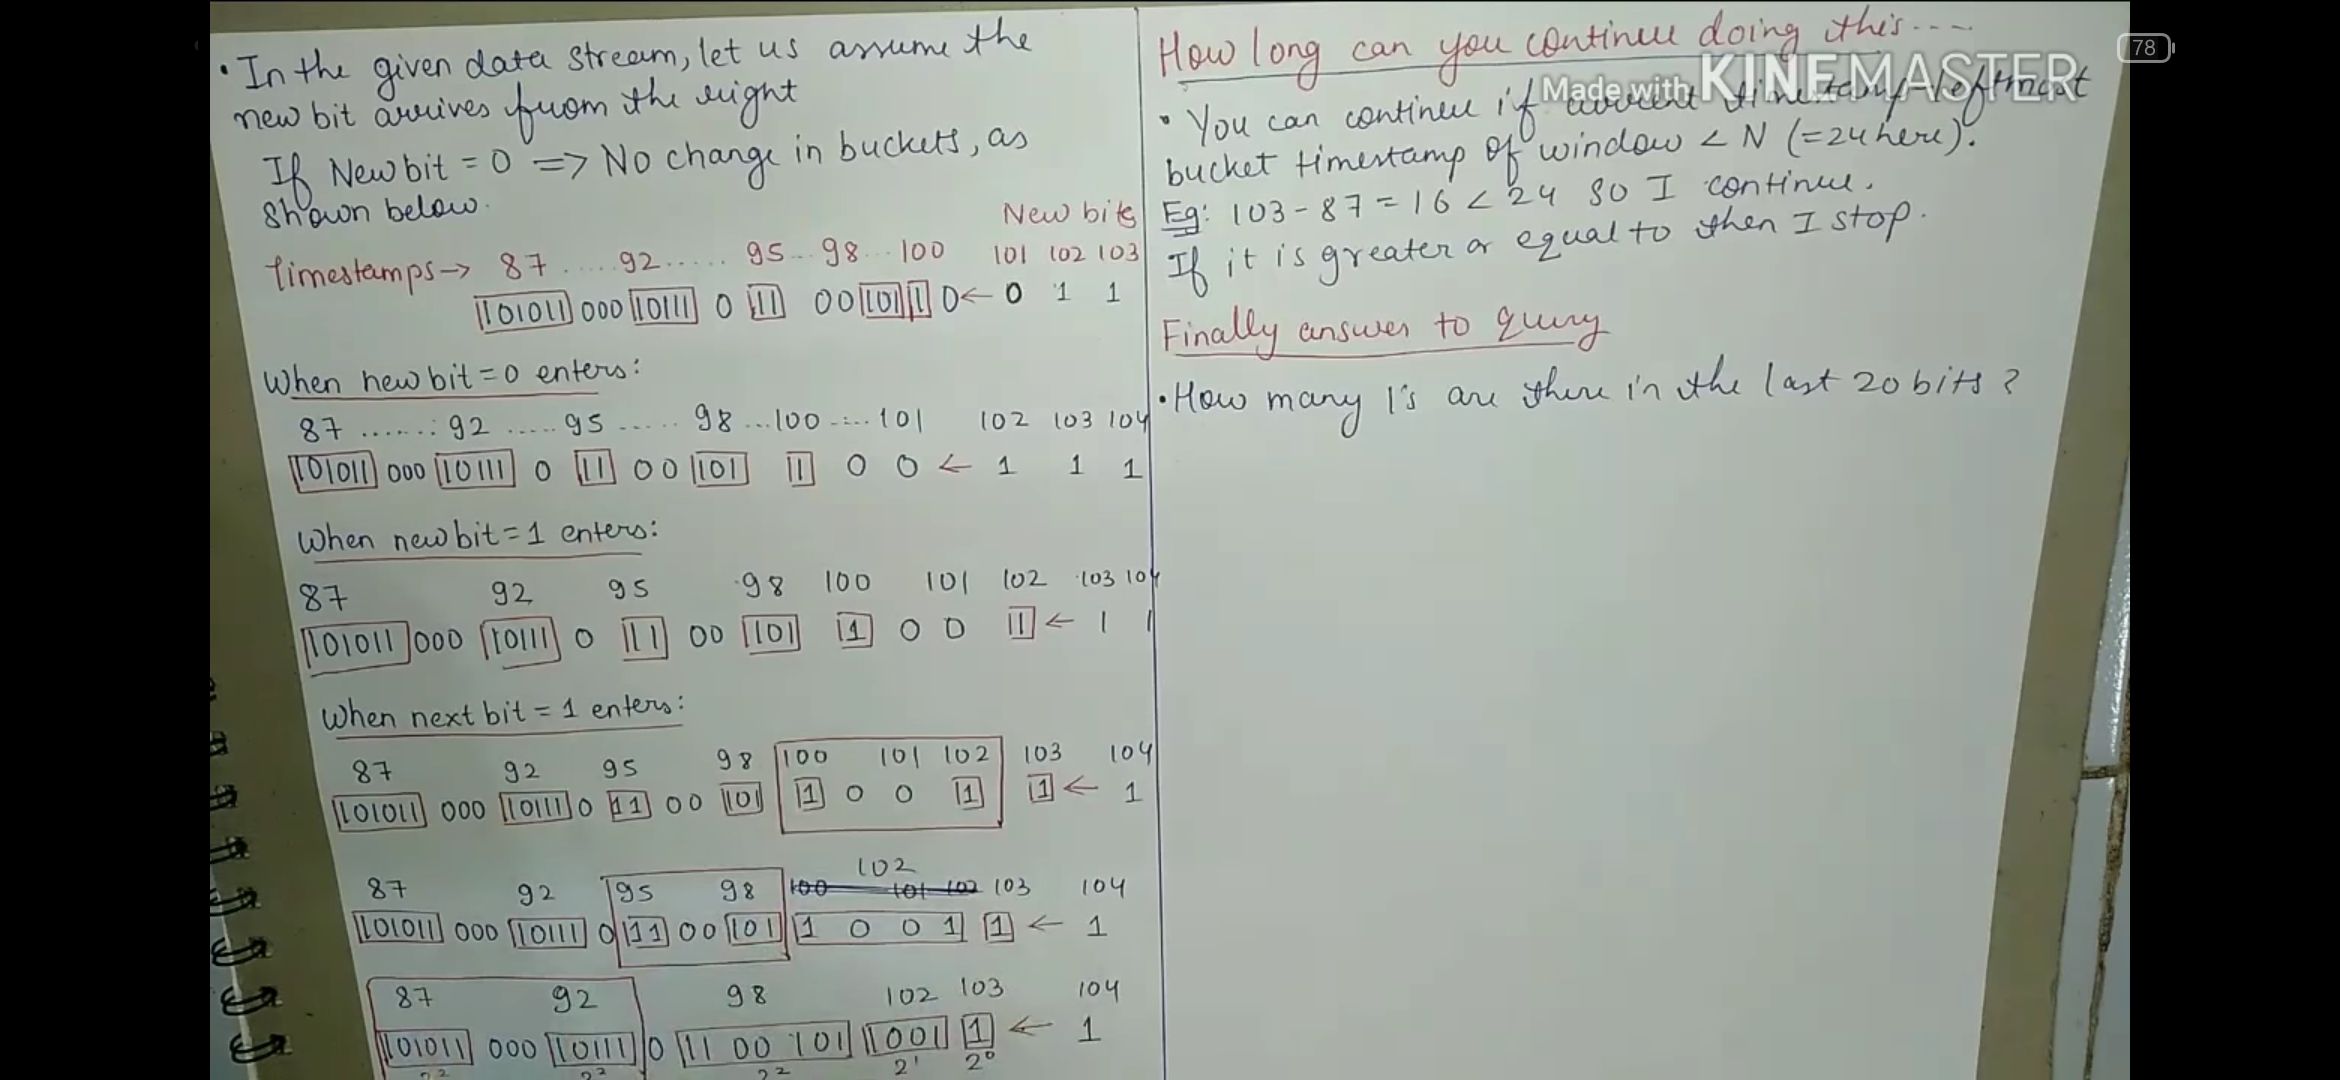 • In the given data stream, let us assume the
new bit arrives from the right
If New bit = 0 => No change in buckets, as
shown below.
New bits
timestamps-> 87 ..... 92 ...... 95 ... 98 ... 100 101 102 103
101011 000 10111 0 11 00 101 1 0 ← 0 1 1
When new bit = 0 enters:
87 ....... 92 ..... 95 ..... 98 ... 100 ..... 101 102 103 104
101011 000 10111 0 11 00 101 1 0 0 ← 1 1 1
When new bit = 1 enters:
87 92 95 98 100 101 102 103 104
101011 000 10111 0 11 00 101 1 0 0 1 ← 1 1
When next bit = 1 enters:
87 92 95 98 100 101 102 103 104
101011 000 10111 0 11 00 101 1 0 0 1 1 ← 1
102
87 92 95 98 100 101 102 103 104
101011 000 10111 0 11 00 101 1 0 0 1 1 ← 1
87 92 98 102 103 104
101011 000 10111 0 11 00 101 1001 1 ← 1
2² 2² 2² 2¹ 2⁰
How long can you continue doing this....
• You can continue if current timestamp - leftmost
bucket timestamp of window < N (=24 here).
Eg: 103 - 87 = 16 < 24 so I continue.
If it is greater or equal to then I stop.
Finally answer to query
• How many 1's are there in the last 20 bits?
Made with KINEMASTER
78